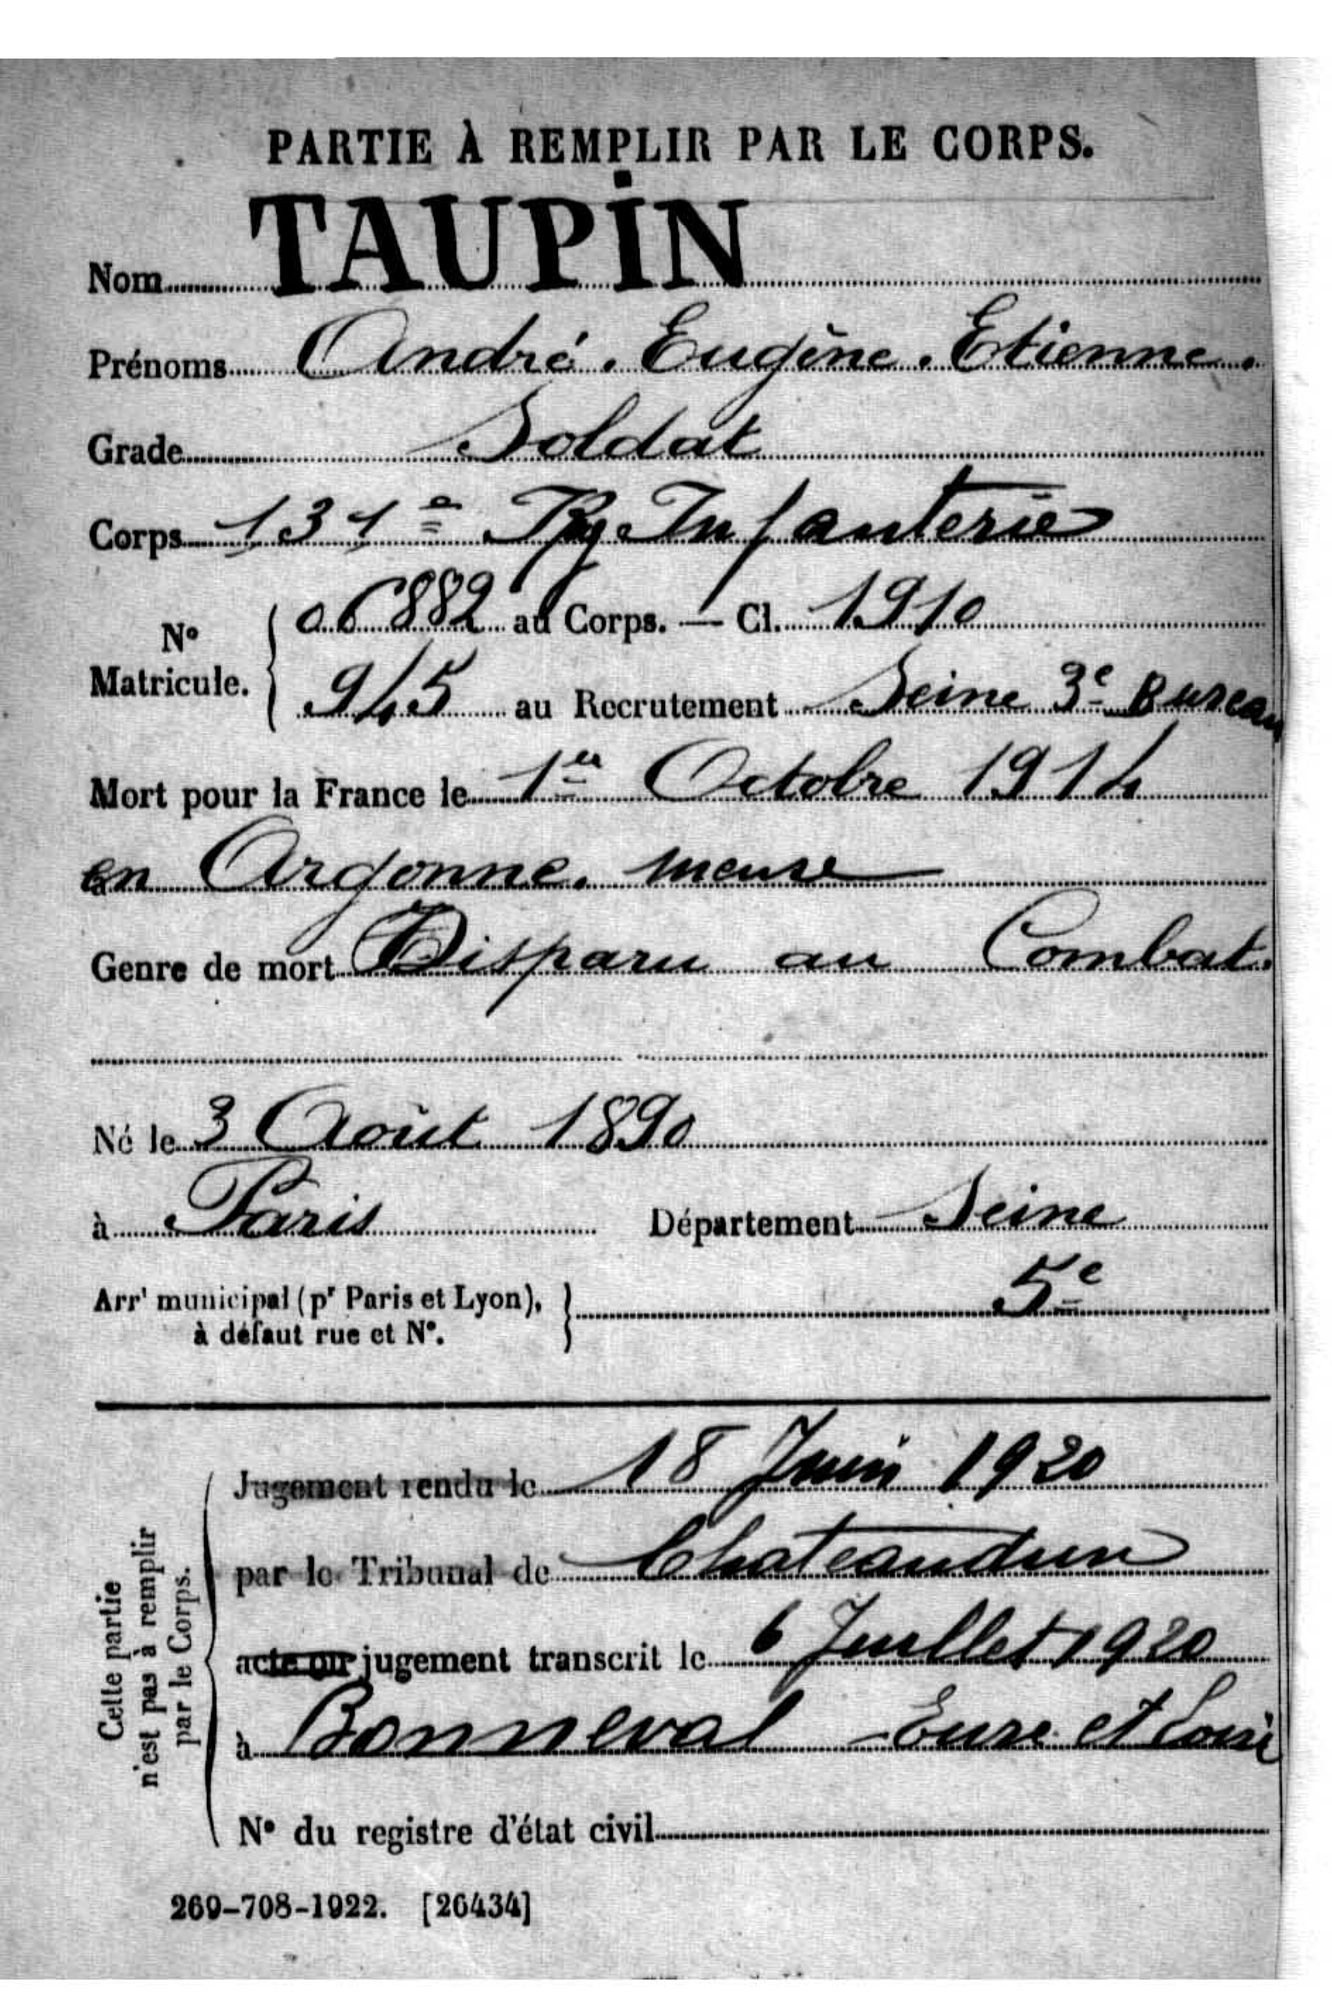 PARTIE À REMPLIR PAR LE CORPS.
Nom TAUPIN
Prénoms André. Eugène. Etienne.
Grade Soldat
Corps 131e Rg Infanterie
No Matricule. 06882 au Corps. — Cl. 1910
945 au Recrutement Seine 3e Bureau
Mort pour la France le 1er Octobre 1914
en Argonne. Meuse
Genre de mort Disparu au Combat.
Né le 3 Août 1890
à Paris Département Seine
Arrt municipal (pr Paris et Lyon), 5e
à défaut rue et No.
Cette partie
n'est pas à remplir
par le Corps.
Jugement rendu le 18 Juin 1920
par le Tribunal de Chateaudun
acte ou jugement transcrit le 6 Juillet 1920
à Bonneval Eure et Loir
No du registre d'état civil
269-708-1922. [26434]